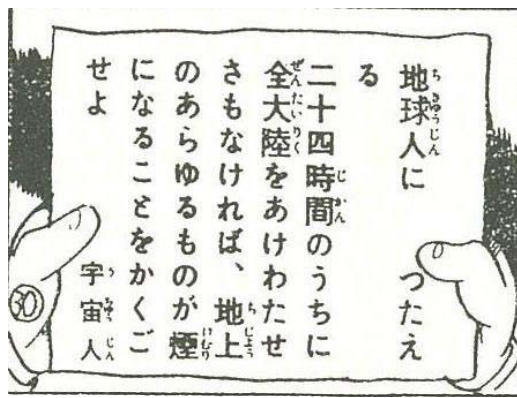 地球人に　つたえ
る
二十四時間のうちに
全大陸をあけわたせ
さもなければ、地上
のあらゆるものが煙
になることをかくご
せよ
宇宙人